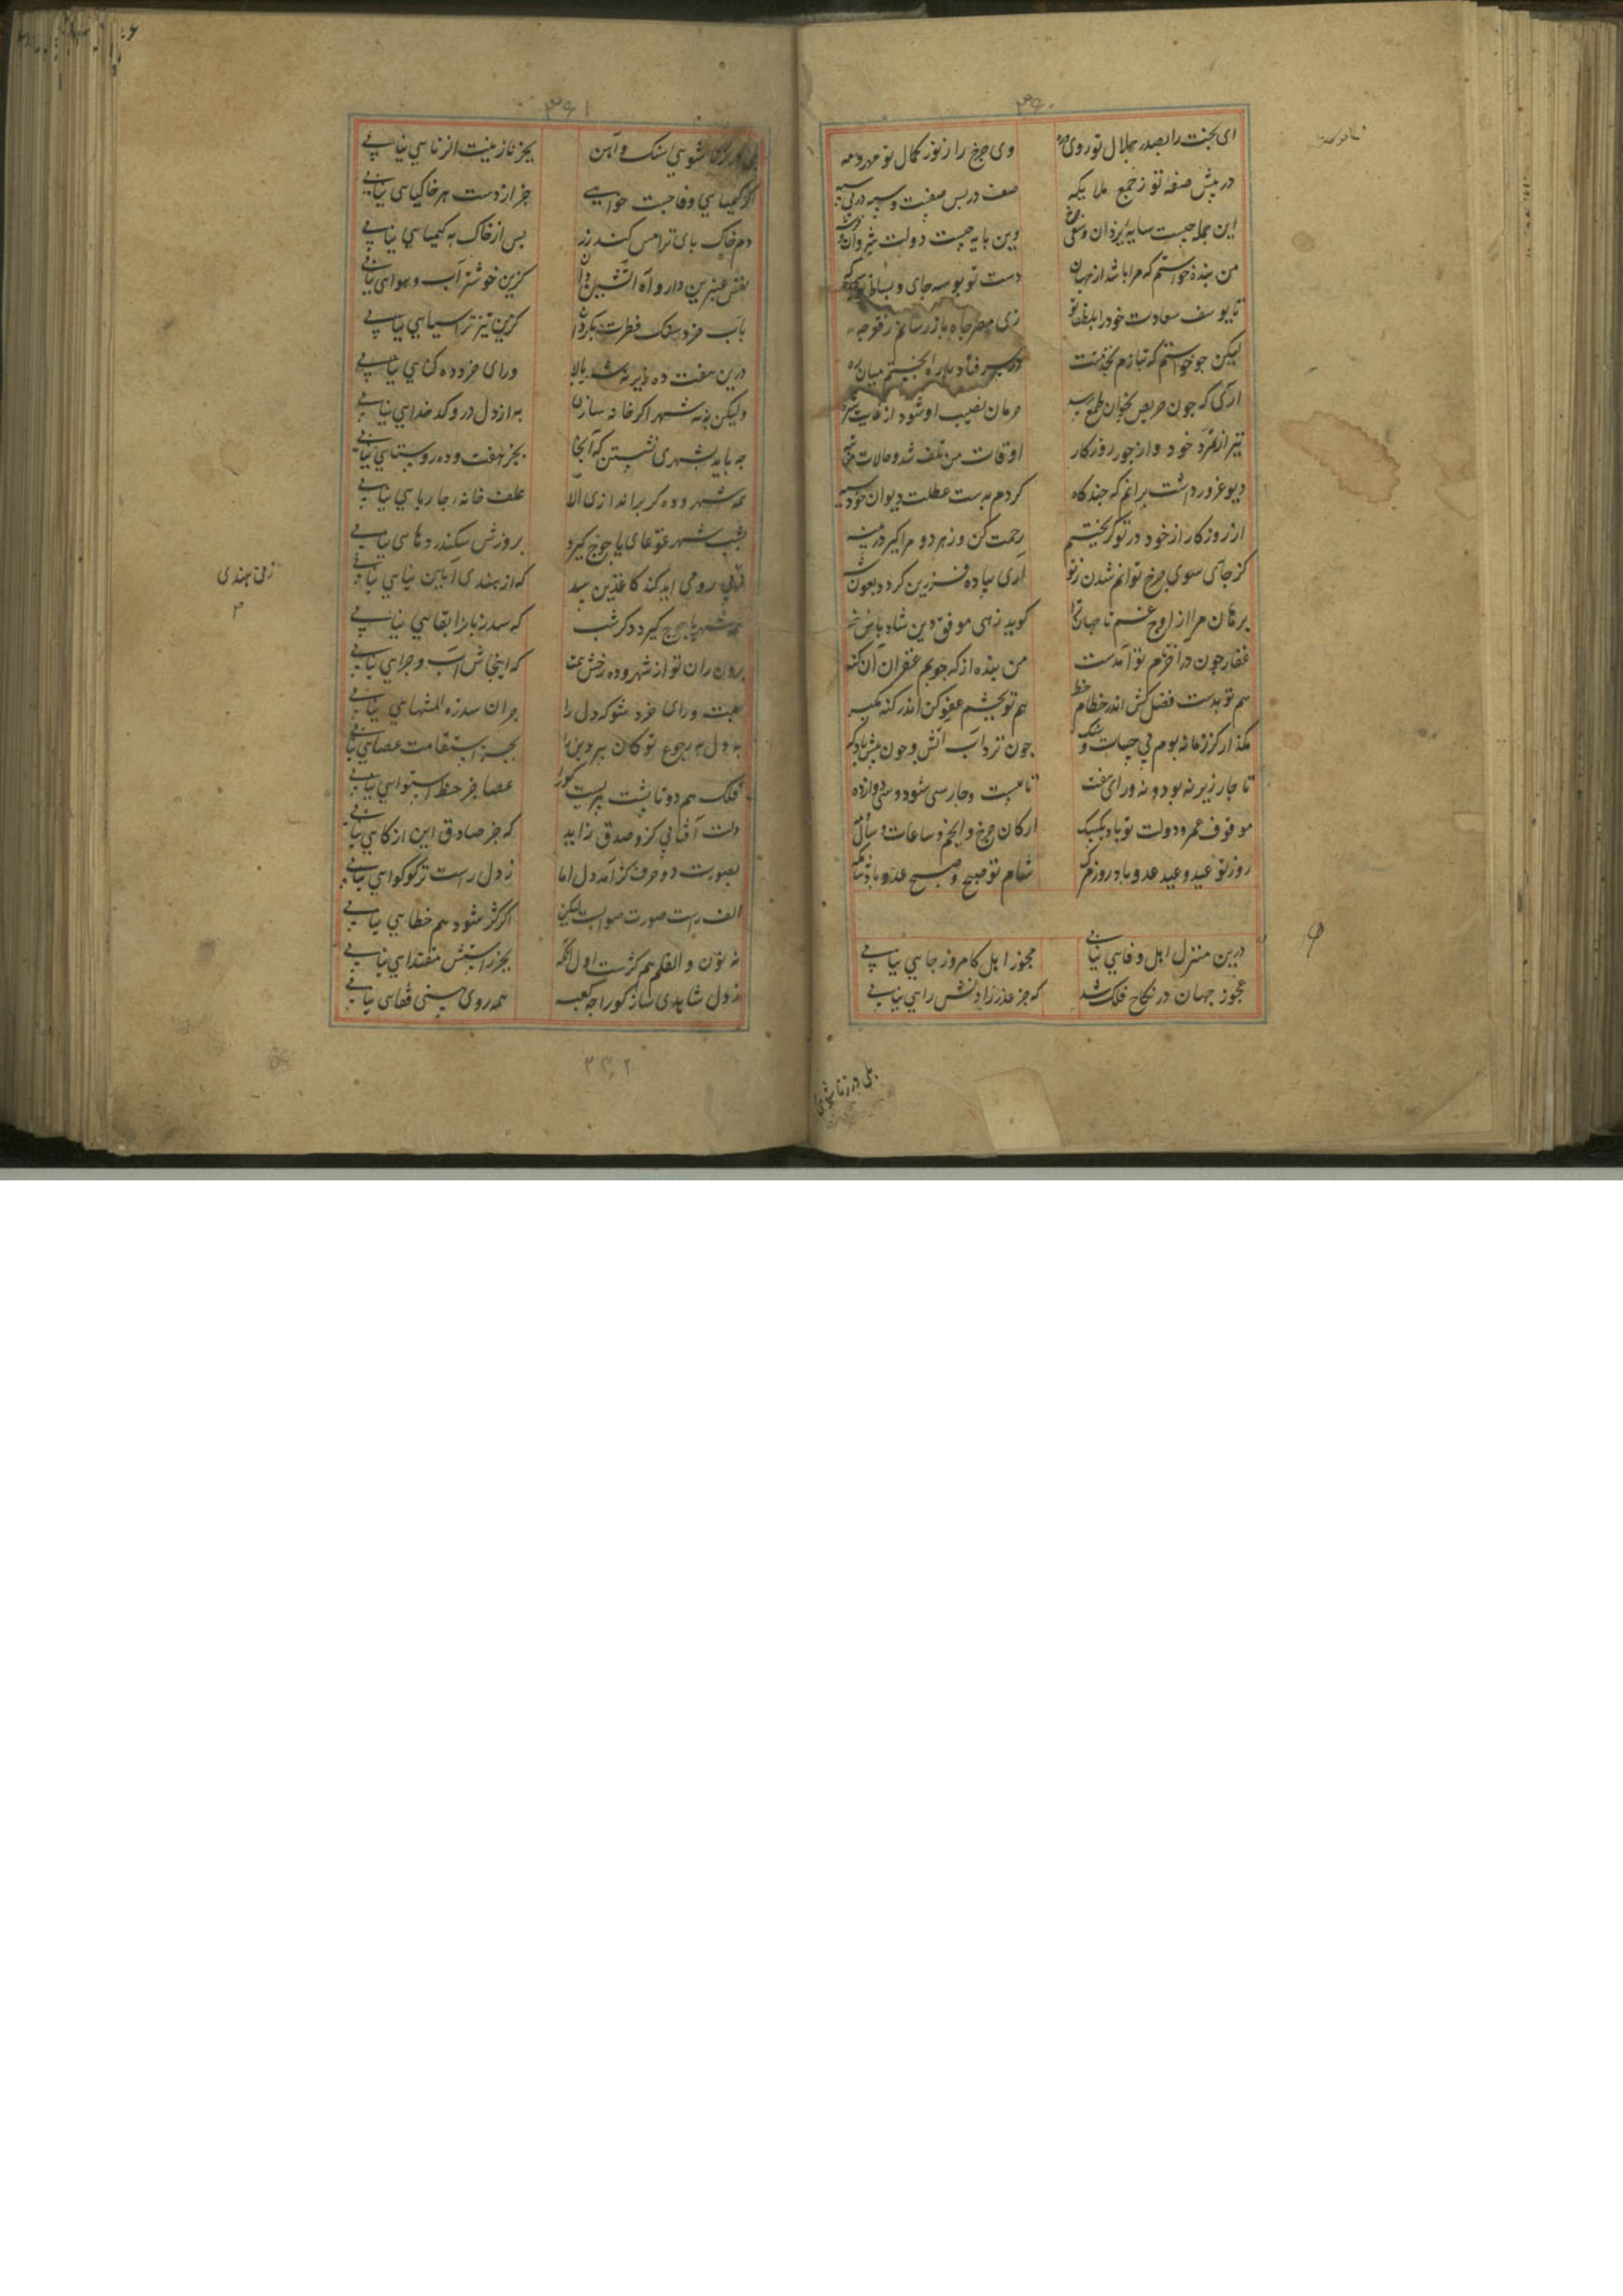 ۳۶۰
ای بخت را بصدر جلال تو روی وره وی چرخ را ز نور کمال تو مهر و مه
در پیش صفه تو ز جمع ملایکه صف در پس صفست و سپه در پی سپه
این جمله چیست سایه یزدان و وین پایه چیست دولت شروان
من بنده خواستم که مرا باشد از جهان دست تو بوسه جای و بساط تو
تا یوسف سعادت خود را بلطف تو زی مصر جاه باز رسانم ز قعر چه
لیکن چو خواستم که بتازم بخدمتت در سر فتاد باره بختم میان ره
آری که چون حریص بخوان طمع رسد حرمان نصیب او شود از غایت شره
تیر از خود و از جور روزگار اوقات من تلف شد و حالات من تبه
دیو غرور داشت برانم که چند گاه کردم بدست عطلت دیوان خود سیه
از روزگار از خود در تو گریختم رحمت کن و زهر دو مرا گیر در پنه
کز جای سوی چرخ توانم شدن ز تو آری پیاده فرزین گردد بعون شه
برهان مرا از اوج غم تا جهان ترا گوید زهی موفق دین شاد باش خه
غفار چون در آخر نام تو آمدست من بنده از که جویم غفران آن گنه
هم تو بدست فضل کش اندر خطام خط هم تو بچشم عفو کن اندر گنه نگه
مگذار کز زمانه بوم فی حیات چون نزد آب آتش و چون پیش باد که
تا چار زیر نه بود و نه ورای هفت تا بیست و چار سی شود و سی دوازده
موقوف عمر و دولت تو باد یک بیک ارکان چرخ و انجم و ساعات و سال
روز تو عید و عید عدو باد روز شام تو صبح و صبح عدو باد
درین منزل اهل وفایی نیابی مجوز اهل کامروز جایی نیابی
عجوز جهان در نکاح فلک شد که جز عذر زادنش رایی نیابی
بلی در زناشویی
۳۶۱
زناشویی سنک و آهن بجز نار بنت الزنایی نیابی
اگر کیمیای وفا جست خواهی جز از دست هر خاکپایی نیابی
دم خاک پای ترا مس کند زر پس از خاک به کیمیایی نیابی
نفس عنبرین دار و آه آتشین زان کزین خوشتر آب و هوایی نیابی
بآب خرد سنک فطرت بکردان کزین تیزتر آسیایی نیابی
درین هفت ده زیر نه شهر بالا ورای خرد ده کیایی نیابی
ولیکن به نه شهر اگر خانه سازی به از دل درو کدخدایی نیابی
چه باید شهری نشستن که آنجا بجز هفت و ده روستایی نیابی
همه شهر و ده گر براندازی الا علف خانه چارپایی نیابی
بشب شهر غوغای یاجوج گیرد بروزش سکندر دهایی نیابی
رومی آید کند کاغذین سد که از هندی آیین بنایی نیابی
همه شهر یاجوج گیرد دگر شب که سد رنه پارا بقایی نیابی
برون ران تو از شهر و ده رخش همت که اینجاش آب و چرایی نیابی
بهمت ورای خرد شو که دل را جز آن سدره المنتهایی نیابی
به دل به رجوع تو کان پیر دین را بجز استقامت عصایی نیابی
فلک هم دوتا پشت پیریست کورا عصا جز خط استوایی نیابی
دلت آفتابی کزو صدق زاید که جز صادق این ازکایی نیابی
بصورت دو حرف کژ آمد دل اما ز دل راست تر گو کوایی نیابی
الف راست صورت صوابست لیکن اگر کژ شود هم خطایی نیابی
نه نون و القلم هم کژست اول آنگه بجز راستیش مقتدایی نیابی
ز دل شاهدی ساز کورا چو کعبه همه روی بینی قفایی نیابی
زفن هندی
۳
۳۳۰۲